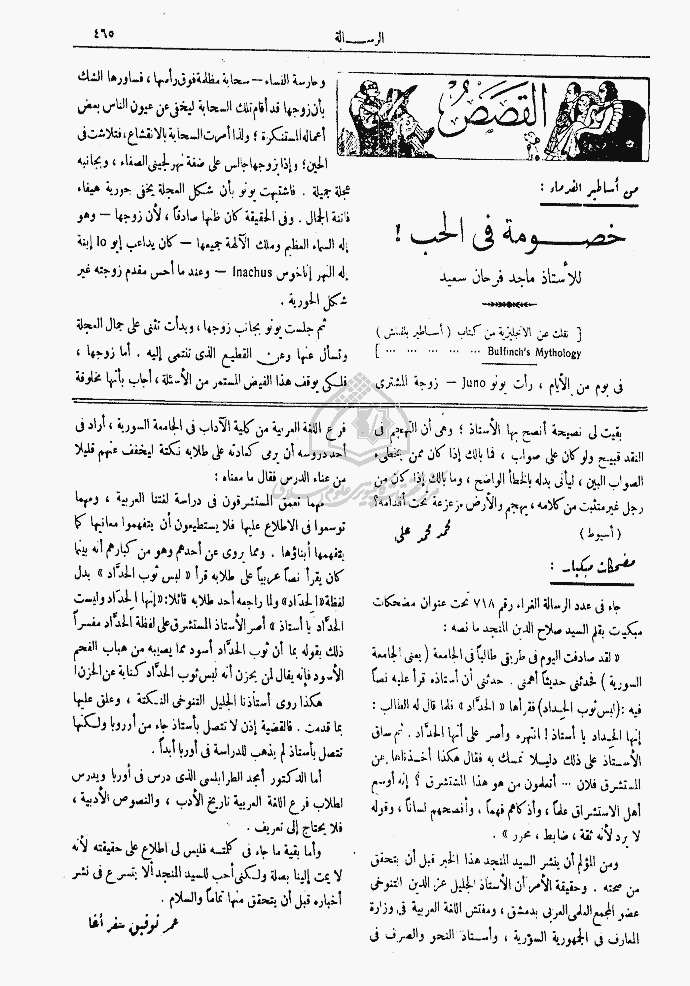 ٤٦٥
الرسالة
القصص
من أساطير القدماء :
خصومة في الحب !
للأستاذ ماجد فرحان سعيد
[ نقلت عن الانجليزية من كتاب ( أساطير بلفنش )
Bulfinch's Mythology ... ... ... ... ... ]
في يوم من الأيام ، رأت يونو Juno — زوجة المشترى
وحارسة النساء — سحابة مظلمة فوق رأسها ، فساورها الشك
بأن زوجها قد أقام تلك السحابة ليخفى عن عيون الناس بعض
أعماله المستنكرة ؛ ولذا أمرت السحابة بالانقشاع ، فتلاشت في
الحين ؛ وإذا بزوجها جالس على ضفة نهر لجيني الصفاء ، وبجانبه
عجلة جميلة . فاشتبهت يونو بأن شكل العجلة يخفى حورية هيفاء
فاتنة الجمال . وفى الحقيقة كان ظنها صادقاً ، لأن زوجها — وهو
إله السماء العظيم وملك الآلهة جميعها — كان يداعب إيو Io إبنة
إله النهر إناخوس Inachus — وعند ما أحس مقدم زوجته غير
شكل الحورية .
ثم جلست يونو بجانب زوجها ، وبدأت تثنى على جمال العجلة
وتسأل عنها وعن القطيع الذى تنتمى إليه . أما زوجها ،
فلكى يوقف هذا الفيض المستمر من الأسئلة ، أجاب بأنها مخلوقة
بقيت لى نصيحة أنصح بها الأستاذ ؛ وهى أن التهجم في
النقد قبيح ولو كان على صواب ، فما بالك إذا كان ممن يخطىء
الصواب البين ، ليأتى بدله بالخطأ الواضح ، وما بالك إذا كان من
رجل غير متثبت من كلامه ، يهجم والأرض مزعزعة تحت أقدامه؟
( أسيوط ) محمد محمد على
مضحكات مبكيات :
جاء في عدد الرسالة الغراء رقم ٧١٨ تحت عنوان مضحكات
مبكيت بقلم السيد صلاح الدين المنجد ما نصه :
« لقد صادفت اليوم فى طريقى طالباً فى الجامعة ( يعنى الجامعة
السورية ) فحدثنى حديثاً أهمنى . حدثنى أن أستاذه قرأ عليه نصاً
فيه : (لبس ثوب الحِداد) فقرأها « الحدَّاد » فلما قال له الطالب :
إنها الحِداد يا أستاذ ! انتهره وأصر على أنها الحدَّاد . ثم ساق
الأستاذ على ذلك دليلا تمسك به فقال هكذا أخذناها عن
المستشرق فلان ... أتعلمون من هو هذا المستشرق ؟ إنه أوسع
أهل الاستشراق علماً ، وأذكاهم فهماً ، وأفصحهم لساناً ، وقوله
لا يرد لأنه ثقة ، ضابط ، محرر » .
ومن المؤلم أن ينشر السيد المنجد هذا الخبر قبل أن يتحقق
من صحته . وحقيقة الأمر أن الأستاذ الجليل عز الدين التنوخى
عضو المجمع العلمى العربى بدمشق ، ومفتش اللغة العربية فى وزارة
المعارف فى الجمهورية السورية ، وأستاذ النحو والصرف فى
فرع اللغة العربية من كلية الآداب فى الجامعة السورية ، أراد فى
أحد دروسه أن يرمى كعادته على طلابه نكتة ليخفف عنهم قليلا
من عناء الدرس فقال ما معناه :
مهما تعمق المستشرقون فى دراسة لغتنا العربية ، ومهما
توسعوا فى الاطلاع عليها فلا يستطيعون أن يتفهموا معانيها كما
يتفهمها أبناؤها . ومما يروى عن أحدهم وهو من كبارهم أنه بينما
كان يقرأ نصاً عربياً على طلابه قرأ « لبس ثوب الحدَّاد » بدل
لفظة « الحِداد » ولما راجعه أحد طلابه قائلا : « إنها الحِداد وليست
الحدَّاد يا أستاذ » أصر الأستاذ المستشرق على لفظة الحدَّاد مفسراً
ذلك بقوله بما أن ثوب الحدَّاد أسود مما يصيبه من هباب الفحم
الأسود فإنه يقال لمن يحزن أنه لبس ثوب الحدَّاد كناية عن الحزن !
هكذا روى أستاذنا الجليل التنوخى النكتة ، وعلق عليها
بما قدمت . فالقضية إذن لا تتصل بأستاذ جاء من أوروبا ولكنها
تتصل بأستاذ لم يذهب للدراسة فى أوربا أبداً .
أما الدكتور أمجد الطرابلسى الذى درس فى أوربا ويدرس
لطلاب فرع اللغة العربية تاريخ الأدب ، والنصوص الأدبية ،
فلا يحتاج إلى تعريف .
وأما بقية ما جاء فى كلمته فليس لى اطلاع على حقيقته لأنه
لا يمت إلينا بصلة ولكنى أحب للسيد المنجد ألا يتسرع فى نشر
أخباره قبل أن يتحقق منها تماماً والسلام .
عمر توفيق سفر أغا